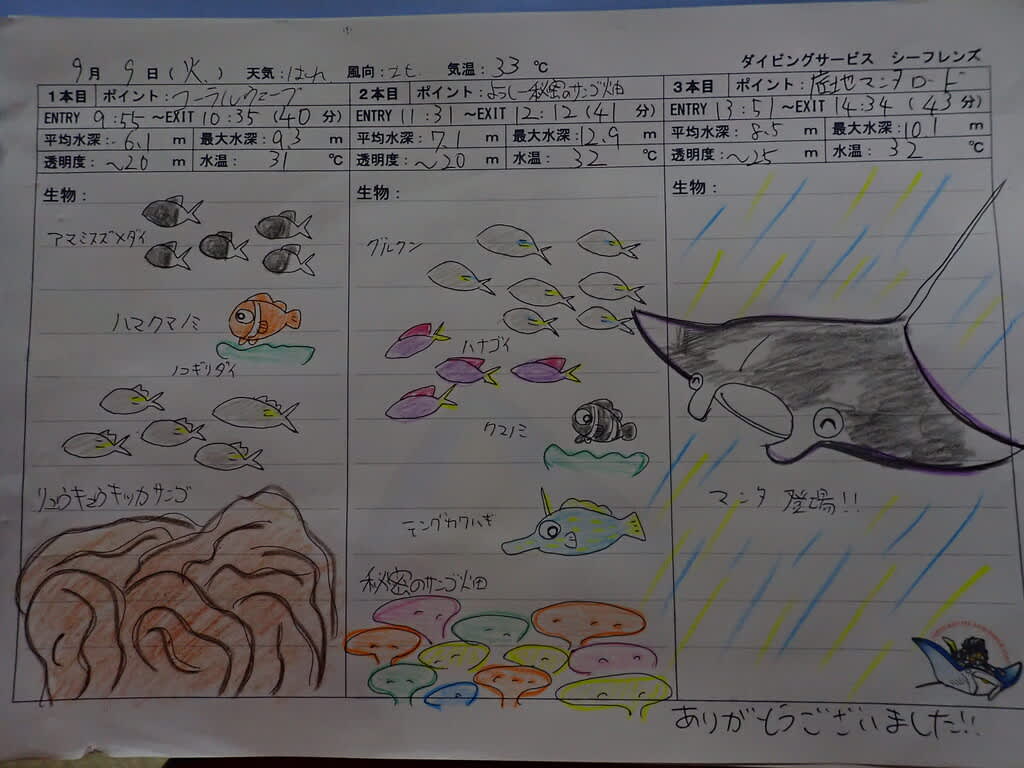 9月 9日(火) 天気:はれ 風向:北 気温:33℃ ダイビングサービス シーフレンズ
1本目 ポイント:コーラルウェーブ
ENTRY 9:55 ~EXIT 10:35 (40分)
平均水深:6.1m 最大水深:9.3m
透明度:~20m 水温:31℃
生物:
アマミスズメダイ
ハマクマノミ
ノコギリダイ
リュウキュウキッカサンゴ
2本目 ポイント:よろしー秘密のサンゴ畑
ENTRY 11:31 ~EXIT 12:12 (41分)
平均水深:7.1m 最大水深:12.9m
透明度:~20m 水温:32℃
生物:
グルクン
ハナゴイ
クマノミ
テングカワハギ
秘密のサンゴ畑
3本目 ポイント:産地マンタロード
ENTRY 13:51 ~EXIT 14:34 (43分)
平均水深:8.5m 最大水深:10.1m
透明度:~25m 水温:32℃
生物:
マンタ 登場!!
ありがとうございました!!